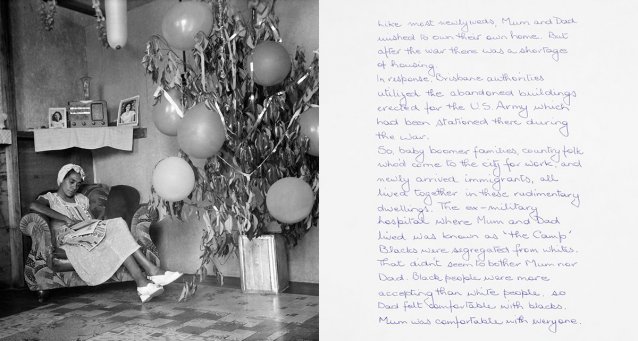 Like most newlyweds, Mum and Dad
wished to own their own home. But
after the war there was a shortage
of housing.
In response, Brisbane authorities
utilized the abandoned buildings
erected for the U.S. Army which
had been stationed there during
the war.
So, baby boomer families, country folk
who'd come to the city for work, and
newly arrived immigrants, all
lived together in these rudimentary
dwellings. The ex-military
hospital where Mum and Dad
lived was known as 'the Camp'
Blacks were segregated from whites.
That didn't seem to bother Mum nor
Dad. Black people were more
accepting than white people, so
Dad felt comfortable with blacks.
Mum was comfortable with everyone.